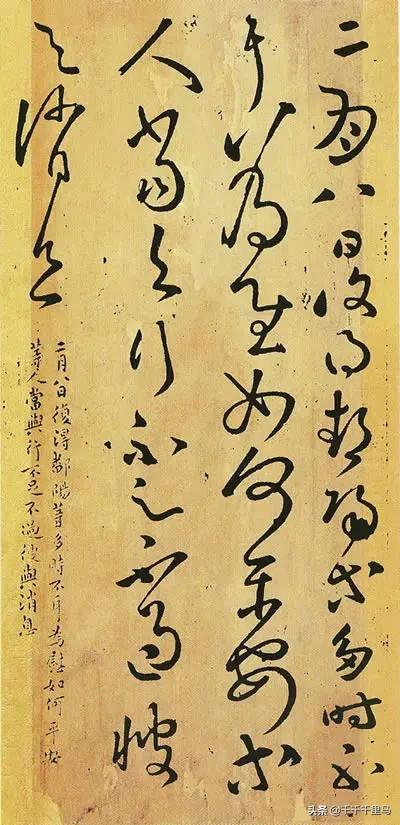 二月八日復得鄱陽等多時不
耳為慰如何平安等
人當與行不足不過彼
與消息
二月八日復得鄱陽等多時不耳為慰如何平安
等人當與行不足不過彼與消息
头条 @千千千里马